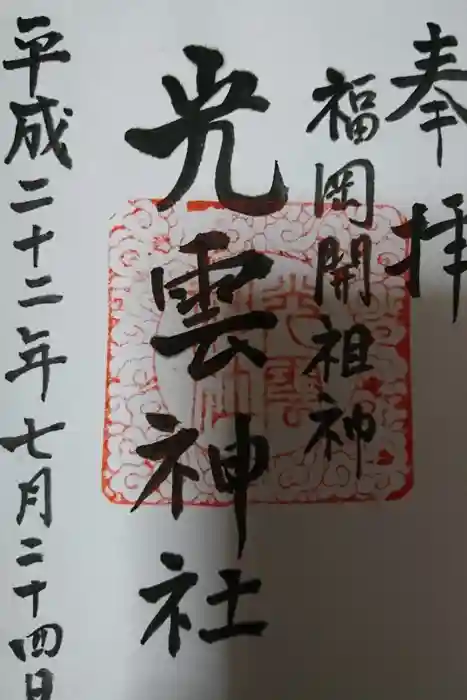 奉拝
福岡開祖神
光雲神社
平成二十二年七月二十四日
光雲神社